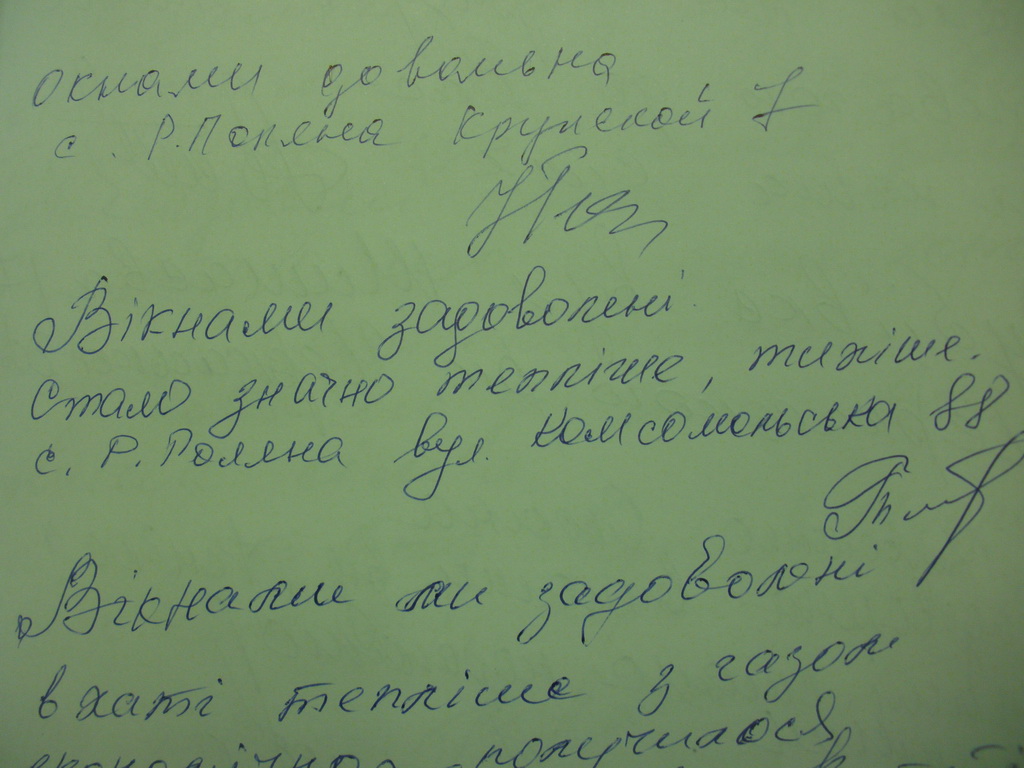 окнами довольна
с. Р.Поляна Крупской 7
Вікнами задоволені.
Стало значно тепліше, тихіше.
с. Р. Поляна вул. Комсомольська 88
Вікнами ми задоволені
в хаті тепліше з газом
получилося